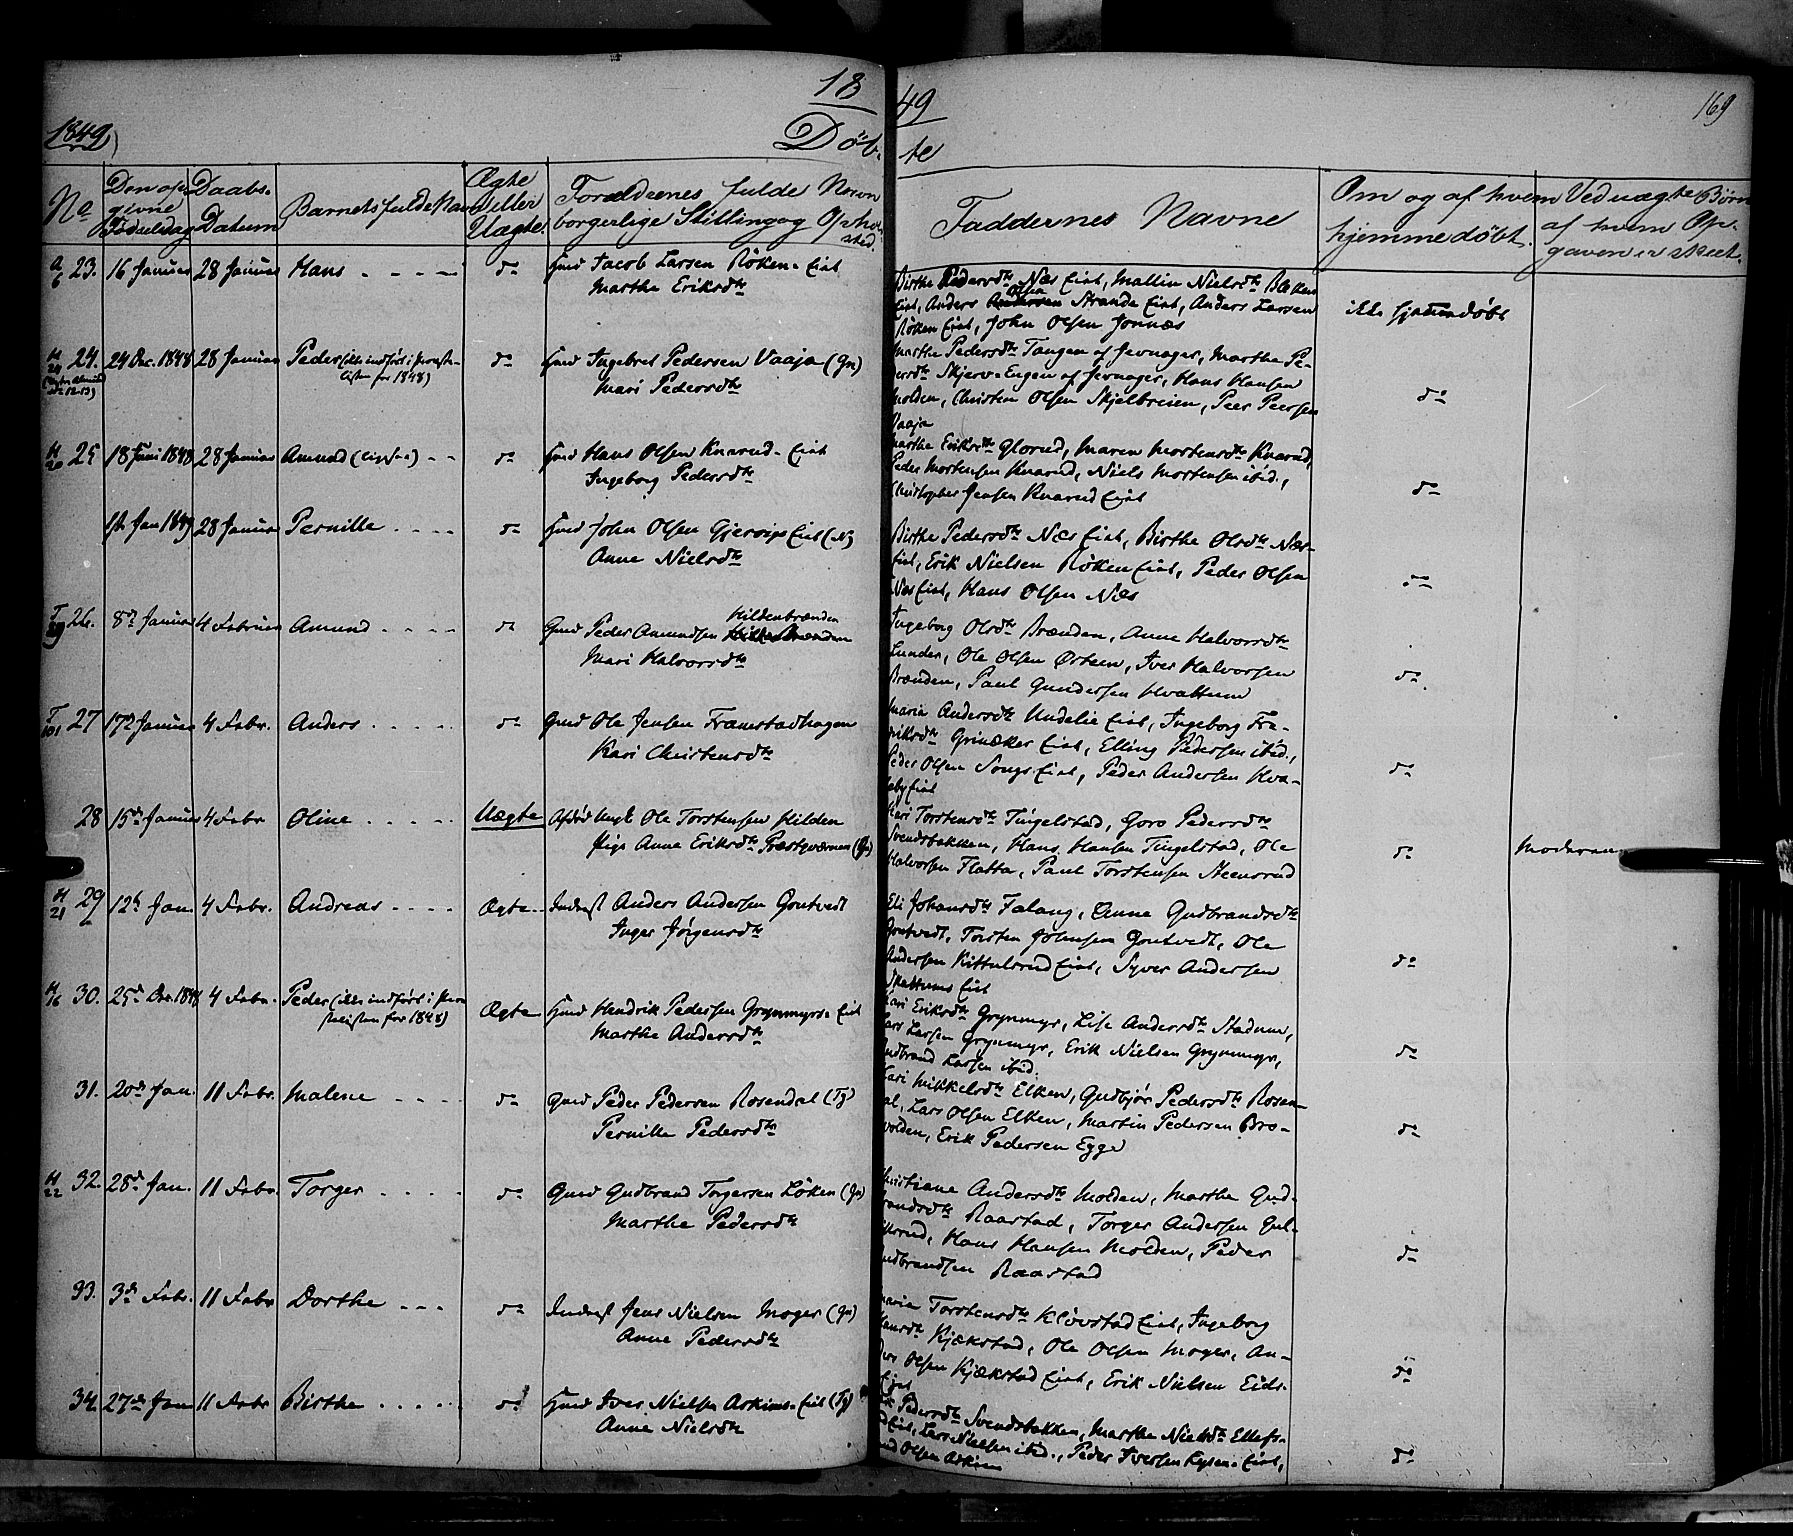 18 49
169
1849) Døb- te
No
Den op- givne Fødselsdag
Daabs- Datum
Barnets fulde Navn
Ægte eller Uægte
Forældrenes fulde Navn borgerlige Stilling og Opholds- sted.
Faddernes Navne
Om og af hvem hjemmedøbt.
Ved uægte Børn af hvem Op- gaven er skeet.
23. 16 Januar 28 Januar Hans do
Huusmd Jacob Larsen Røken-Eiet
Marthe Eriksdtr
Birthe Pedersdtr Næs Eiet, Mallin Nielsdtr Bleken
Eiet, Anders Olsen Strande Eiet, Anders Larsen
Røken Eiet, John Olsen Jonnæs
ikke hjemmedøbt
24. 24 Dec. 1848 28 Januar Peder (ikke indført i Præste-
listen for 1848) do
Ingebret Pedersen Vaaja (Gn)
Mari Pedersdtr
Marthe Pedersdtr Tangen af Jevnager, Marthe Pe-
dersdtr Skjerv-Engen af Jevnager, Hans Hansen
Molden, Christen Olsen Skjelbreien, Peer Peersen
Vaaja
do
25 18 Juni 1848 28 Januar Amund do
Hans Olsen Knarud-Eiet
Ingeborg Pedersdtr
Marthe Eriksdtr Glorud, Maren Mortensdtr Knarud,
Peder Mortensen Knarud, Niels Mortensen ibid.,
Christopher Jensen Knarud Eiet
do
Jan 1849 28 Januar Pernille do
John Olsen Gjervigs Eiet (N)
Anne Nielsdtr
Birthe Pedersdtr Næs Eiet, Birthe Olsdtr Næs-
Eiet, Erik Nielsen Røken Eiet, Peder Olsen
Næs Eiet, Hans Olsen Næs
do
26. 8de Januar 4 Februar Amund do
Gmd Peder Amundsen Hildenbrænden
Mari Halvorsdtr
Ingeborg Olsdtr Brænden, Anne Halvorsdtr
Lunder, Ole Olsen Østeen, Iver Halvorsen
Brænden, Paul Gundersen Hvattum
do
27 17de Januar 4 Febr. Anders do
Gmd Ole Jensen Framstadhagen
Kari Christensdtr
Maria Andersdtr Undelie Eiet, Ingeborg Fre-
driksdtr Grinaker Eiet, Elling Pedersen ibid.,
Peder Olsen Songs Eiet, Peder Andersen Hva-
leby Eiet
do
28 15de Januar 4 Febr Oline Uægte
Ole Torstensen Hilden
Pige Anne Eriksdtr Præstqværnen (Gn)
Kari Torstensdtr Tingelstad, Goro Pedersdtr
Svendsbakken, Hans Hansen Tingelstad, Ole
Halvorsen Flatta, Paul Torstensen Steensrud
do
Moderen
29 12te Jan. 4 Febr. Andreas Ægte
Inderst Anders Andersen Grutvedt
Inger Jørgensdtr
Eli Johansdtr Falang, Anne Gudbrandsdtr
Grutvedt, Torsten Johnsen Grutvedt, Ole
Andersen Kittulsrud Eiet, Syver Andersen
Skattums Eiet
do
30. 25de Dec. 1848 4 Febr. Peder (ikke indført i Præ-
stelisten for 1848) Ægte
Hendrik Pedersen Grynmyrs-Eiet
Marthe Andersdtr
Kari Eriksdtr Grynmyr, Lise Andersdtr Stadum,
Lars Larsen Grynmyr, Erik Nielsen Grynmyr,
Gudbrand Larsen ibid.
do
31. 20de Jan. 11 Febr. Malene do
Gmd Peder Pedersen Rosendal (Tg)
Pernille Pedersdtr
Kari Mikkelsdtr Elken, Gudbjør Pedersdtr Rosen-
dal, Lars Olsen Elken, Martin Pedersen Bro-
volden, Erik Pedersen Egge
do
32. 28de Jan. 11 Febr. Torger do
Gmd Gudbrand Torgersen Løken (Gn)
Marthe Pedersdtr
Christiane Andersdtr Molden, Marthe Gud-
brandsdtr Raastad, Torger Andersen Gul-
lerud, Hans Hansen Molden, Peder
Gudbrandsen Raastad
do
33. 3de Febr. 11 Febr Dorthe do
Inderst Jens Nielsen Moger (Gn)
Anne Pedersdtr
Maria Torstensdtr Kløvstad Eiet, Ingeborg
Hansdtr Kjækstad, Ole Olsen Moger, An-
ders Olsen Kjækstad Eiet, Erik Nielsen Eids-
Eiet
do
34. 27de Jan 11 Febr Birthe do
Iver Nielsen Askims-Eiet (Tg)
Anne Nielsdtr
Pedersdtr Svendsbakken, Marthe Nielsdtr Ellefs-
rud Eiet, Lars Nielsen ibid., Peder Iversen Rysen-Eiet,
Olsen Askim
do